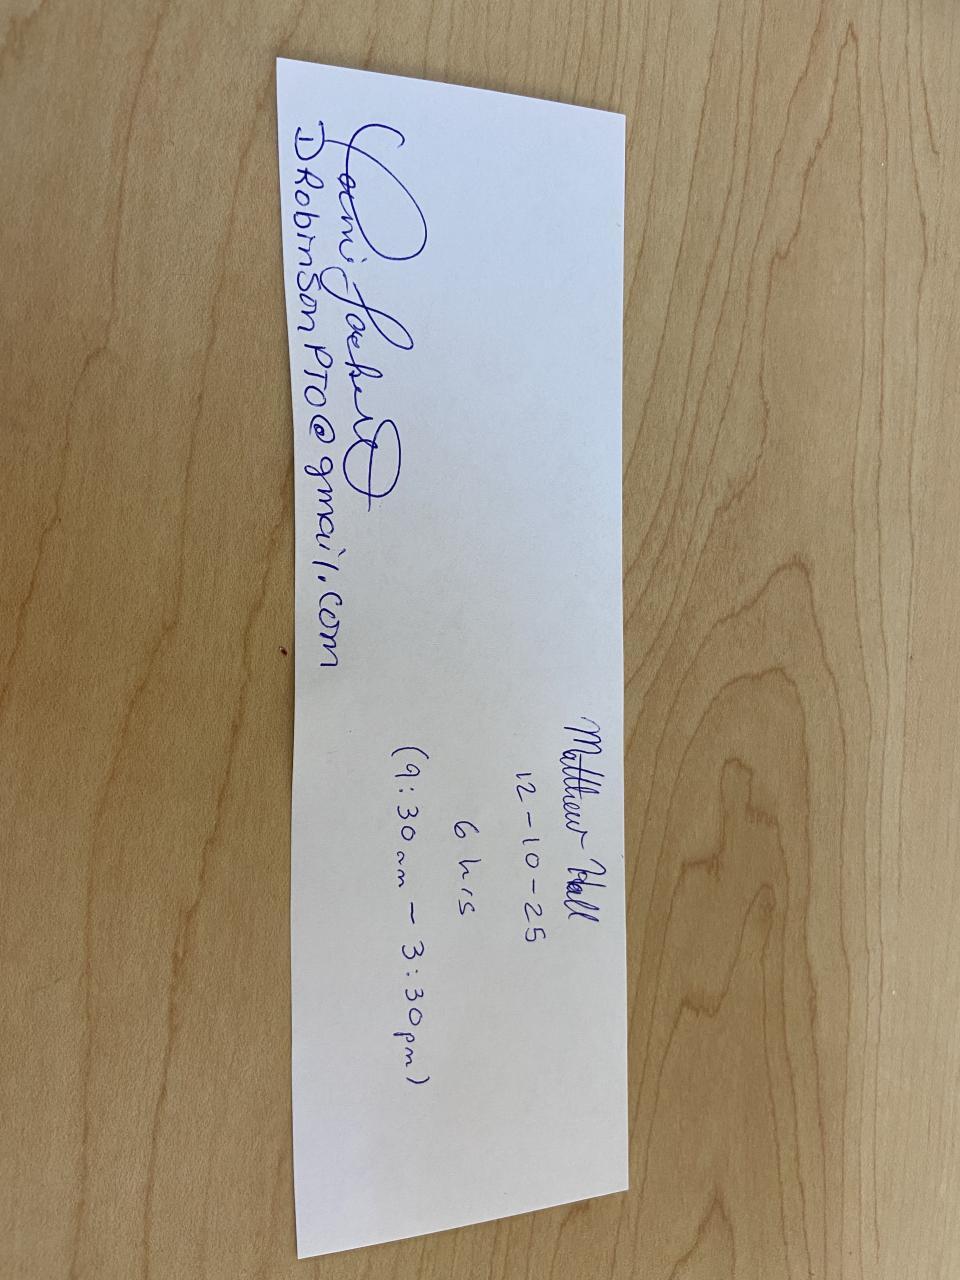 Matthew Hall
12-10-25
6 hrs
(9:30am - 3:30pm)
DRobinsonPTO@gmail.com